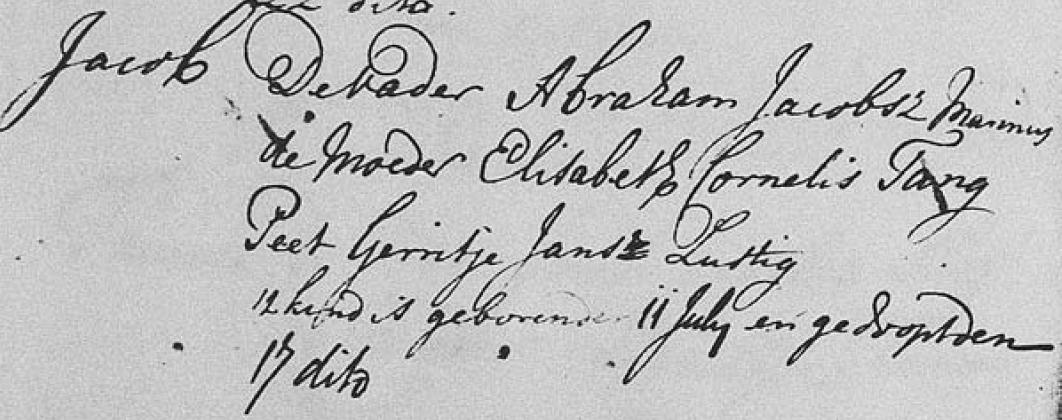 dito.
Jacob De Vader Abraham Jacobsz Marinus
de Moeder Elisabeth Cornelis Tang
Peet Gerritje Jans Lustig
kind is geboren 11 July en gedooptden
17 dito